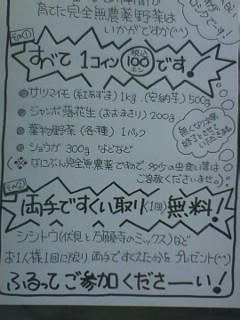 育てた完全無農薬野菜は
いかがですか(^^)
その①
すべて1コイン税込100エンです!
サツマイモ(紅あずま)1kg(安納芋)500g
ジャンボ落花生(おおまさり)200g
葉物野菜(各種)1パック
ショウガ 300g などなど
なにぶん完全無農薬ですので、多少の虫食い等は
ご容赦くださいませ。)
無くなり次第
終了させて
いただきます
その②
両手ですくい取り(1回)無料!
シシトウ(伏見と万願寺のミックス)など
お1人様1回に限り両手ですくえた分をプレゼント(^^)
ふるってご参加くださーい!